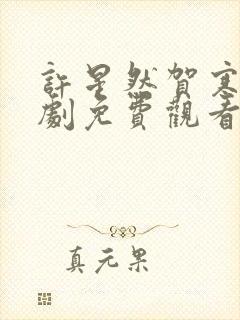 許星然賀寒
劇免費觀看
真元果